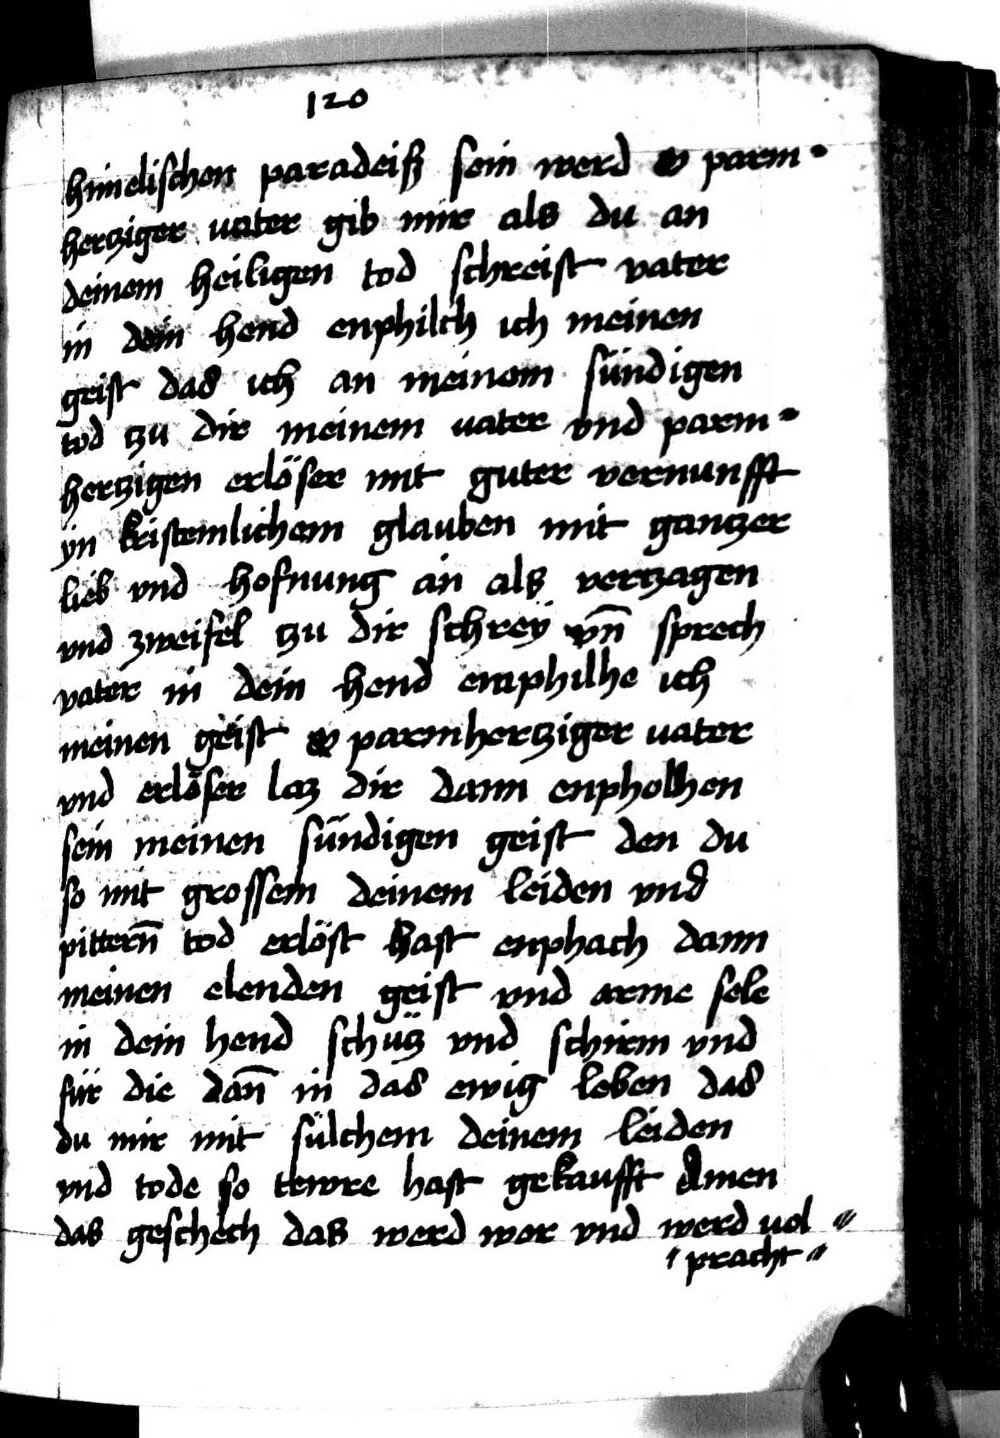 120
himelischen paradeiß sein werd O parm-
hertziger vater gib mir als du an
deinem heiligen tod schreist vater
in dein hend enphilch ich meinen
geist das ich an meinem sündigen
tod tzu dir meinem vater vnd parm-
hertzigen erlöser mit guter vernunfft
yn kristenlichem glauben mit gantzer
lieb vnd hofnung an als vertzagen
vnd zweifel tzu dir schrey vn̄ sprech
vater in dein hend emphilhe ich
meinen geist O parmhertziger vater
vnd erlöser laz dir dann enpholhen
sein meinen sündigen geist den du
so mit grossem deinem leiden vnd
pittern̄ tod erlöst hast enphach dann
meinen elenden geist vnd arme sele
in dein hend schütz vnd schirm vnd
für die dan̄ in das ewig leben das
du mir mit sülchem deinem leiden
vnd tode so tewre hast gekaufft Amen
das geschech das werd wor vnd werd vol〃
pracht〃